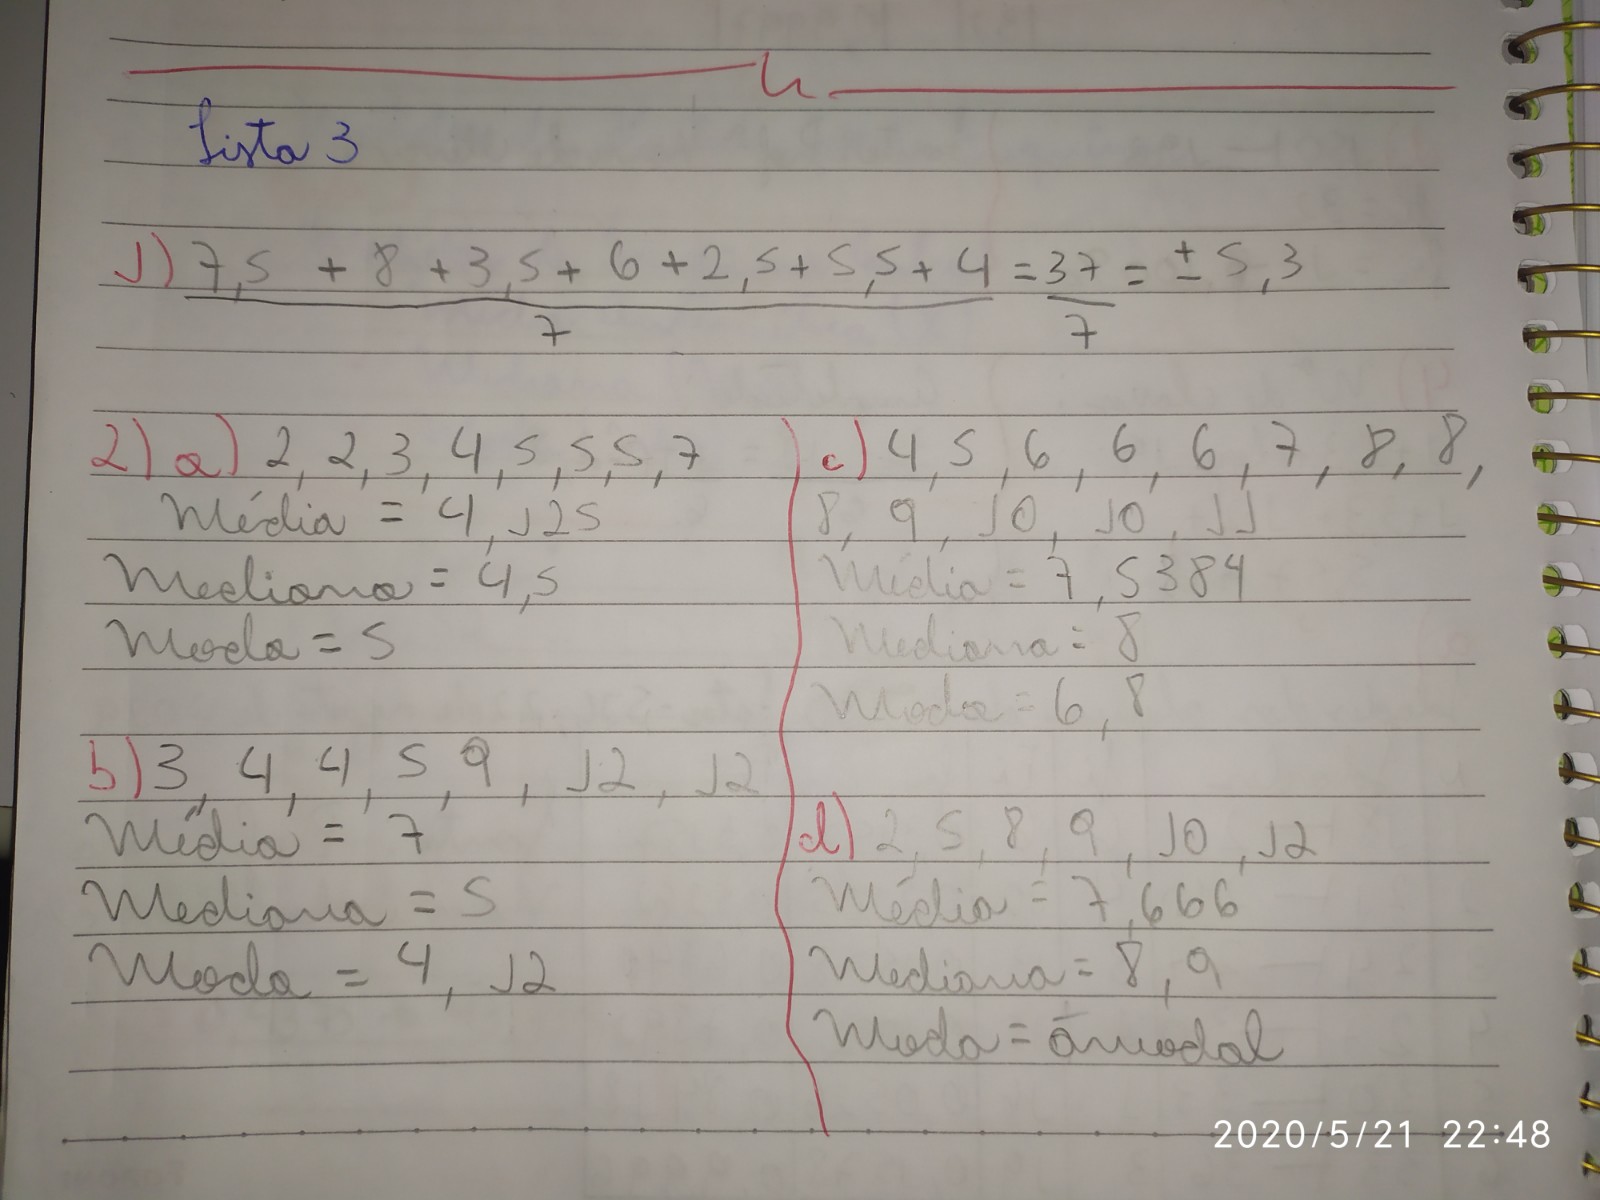 Lista 3
1) 7,5 + 8 + 3,5 + 6 + 2,5 + 5,5 + 4 = 37 = ± 5,3
7 7
2) a) 2, 2, 3, 4, 5, 5, 5, 7
Média = 4,125
Mediana = 4,5
Moda = 5
b) 3, 4, 4, 5, 9, 12, 12
Média = 7
Mediana = 5
Moda = 4, 12
c) 4, 5, 6, 6, 6, 7, 8, 8,
8, 9, 10, 10, 11
Média = 7,5384
Mediana = 8
Moda = 6, 8
d) 2, 5, 8, 9, 10, 12
Média = 7,666
Mediana = 8, 9
Moda = amodal
2020/5/21 22:48